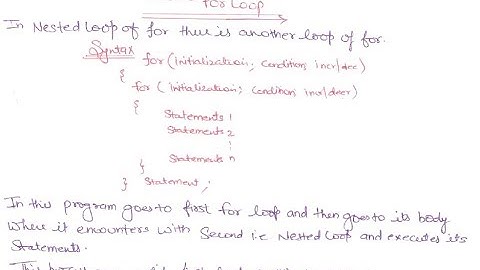 for Loop
In Nested Loop of for thus is another loop of for.
Syntax for (Initialization; Condition incr/dec)
{
for (initialization; Condition incr/decr)
{
Statements 1
Statements 2
⋮
Statements n
}
} Statement ;
In this program goes to first for loop and then goes to its body
Where it encounters with Second i.e Nested Loop and executes its
Statements.